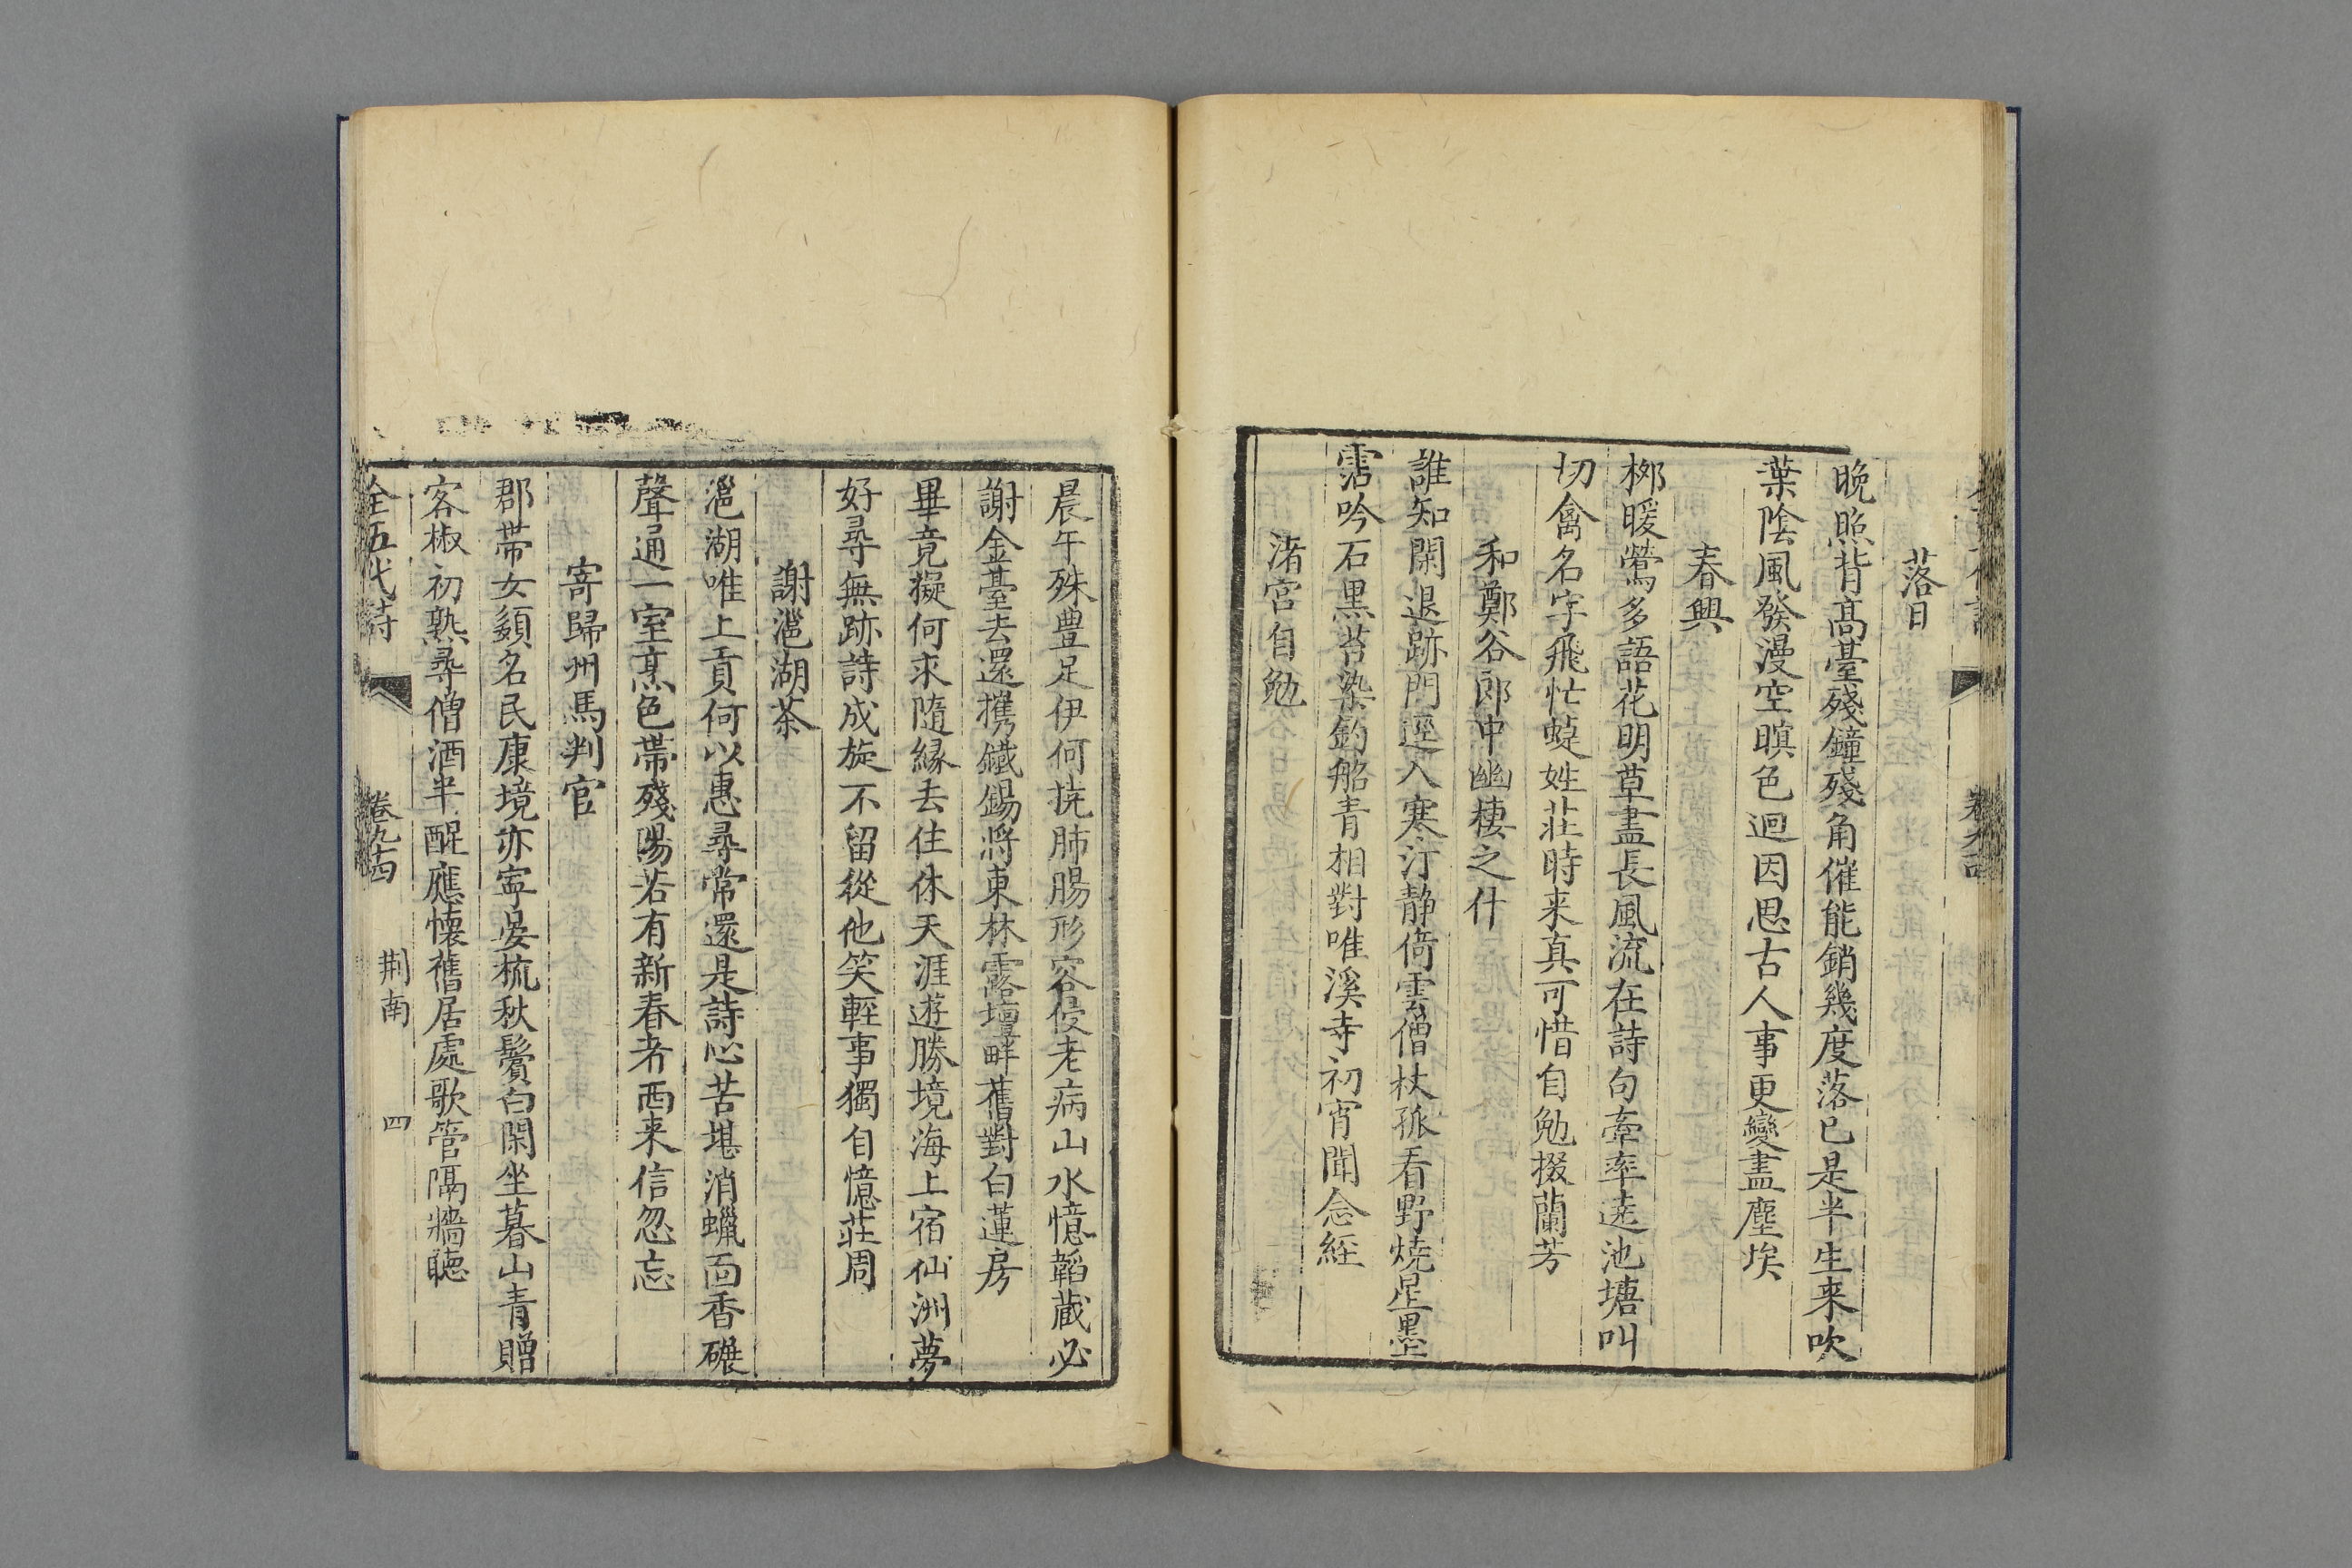 落日
晚照背高臺殘鐘殘角催能銷幾度落已是半生来吹
葉陰風發漫空暝色迴因思古人事更變盡塵埃
春興
栁暖鶯多語花明草盡長風流在詩句牽率遶池塘叫
切禽名字飛忙蜨姓莊時来真可惜自勉掇蘭芳
和鄭谷郎中幽棲之什
誰知閑退跡門逕入寒汀静倚雲僧杖孤看野燒星墨
霑吟石黒苔染釣船青相對唯溪寺初宵聞念經
渚宮自勉
晨午殊豊足伊何撓肺腸形容侵老病山水憶韜藏必
謝金臺去還携鐵錫將東林露壇畔舊對白蓮房
畢竟擬何求隨緣去住休天涯遊勝境海上宿仙洲夢
好尋無跡詩成旋不留從他笑輕事獨自憶莊周
謝㴩湖茶
㴩湖唯上貢何以惠尋常還是詩心苦堪消蠟面香碾
聲通一室烹色帶殘陽若有新春者西来信忽忘
寄歸州馬判官
郡帶女嬃名民康境亦寧晏梳秋鬢白閑坐暮山青贈
客椒初熟尋僧酒半醒應懷舊居處歌管隔牆聴
全五代詩 卷九十四 荆南 四